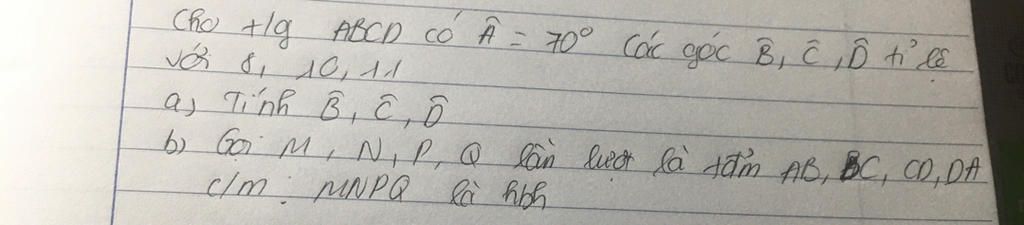 Cho t/g ABCD có Â = 70° Các góc B̂, Ĉ, D̂ tỉ lệ
với 8, 10, 11
a, Tính B̂, Ĉ, D̂
b) Gọi M, N, P, Q lần lượt là tđiểm AB, BC, CD, DA
c/m: MNPQ là hbh